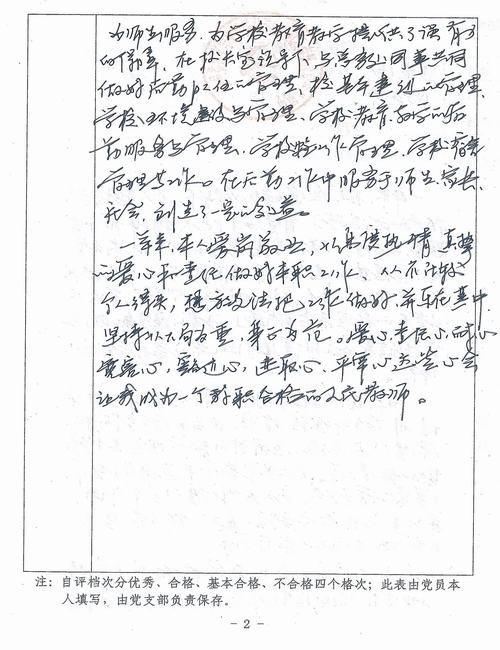 为师生服务,为学校教育教学提供了强有力
的保障。在校长室领导下,与总务处同事共同
做好后勤队伍的管理、校基本建设的管理、
学校环境建设与管理、学校教育教学的后
勤服务与管理、学校特工作管理、学校宿舍
管理等工作。在后勤工作中服务于师生、家长、
社会,创造了一定的效益。
一年来,本人爱岗敬业,以满腔热情、真挚
的爱心和责任做好本职工作、从不计较
个人得失,想方设法把工作做好,并乐在其中,
坚持以大局为重,率正为范。爱心、责任心、耐心
宽容心、奉献心、进取心、平常心,这些心会
让我成为一个称职合格的人民教师。
注:自评档次分优秀、合格、基本合格、不合格四个格次;此表由党员本
人填写,由党支部负责保存。
- 2 -